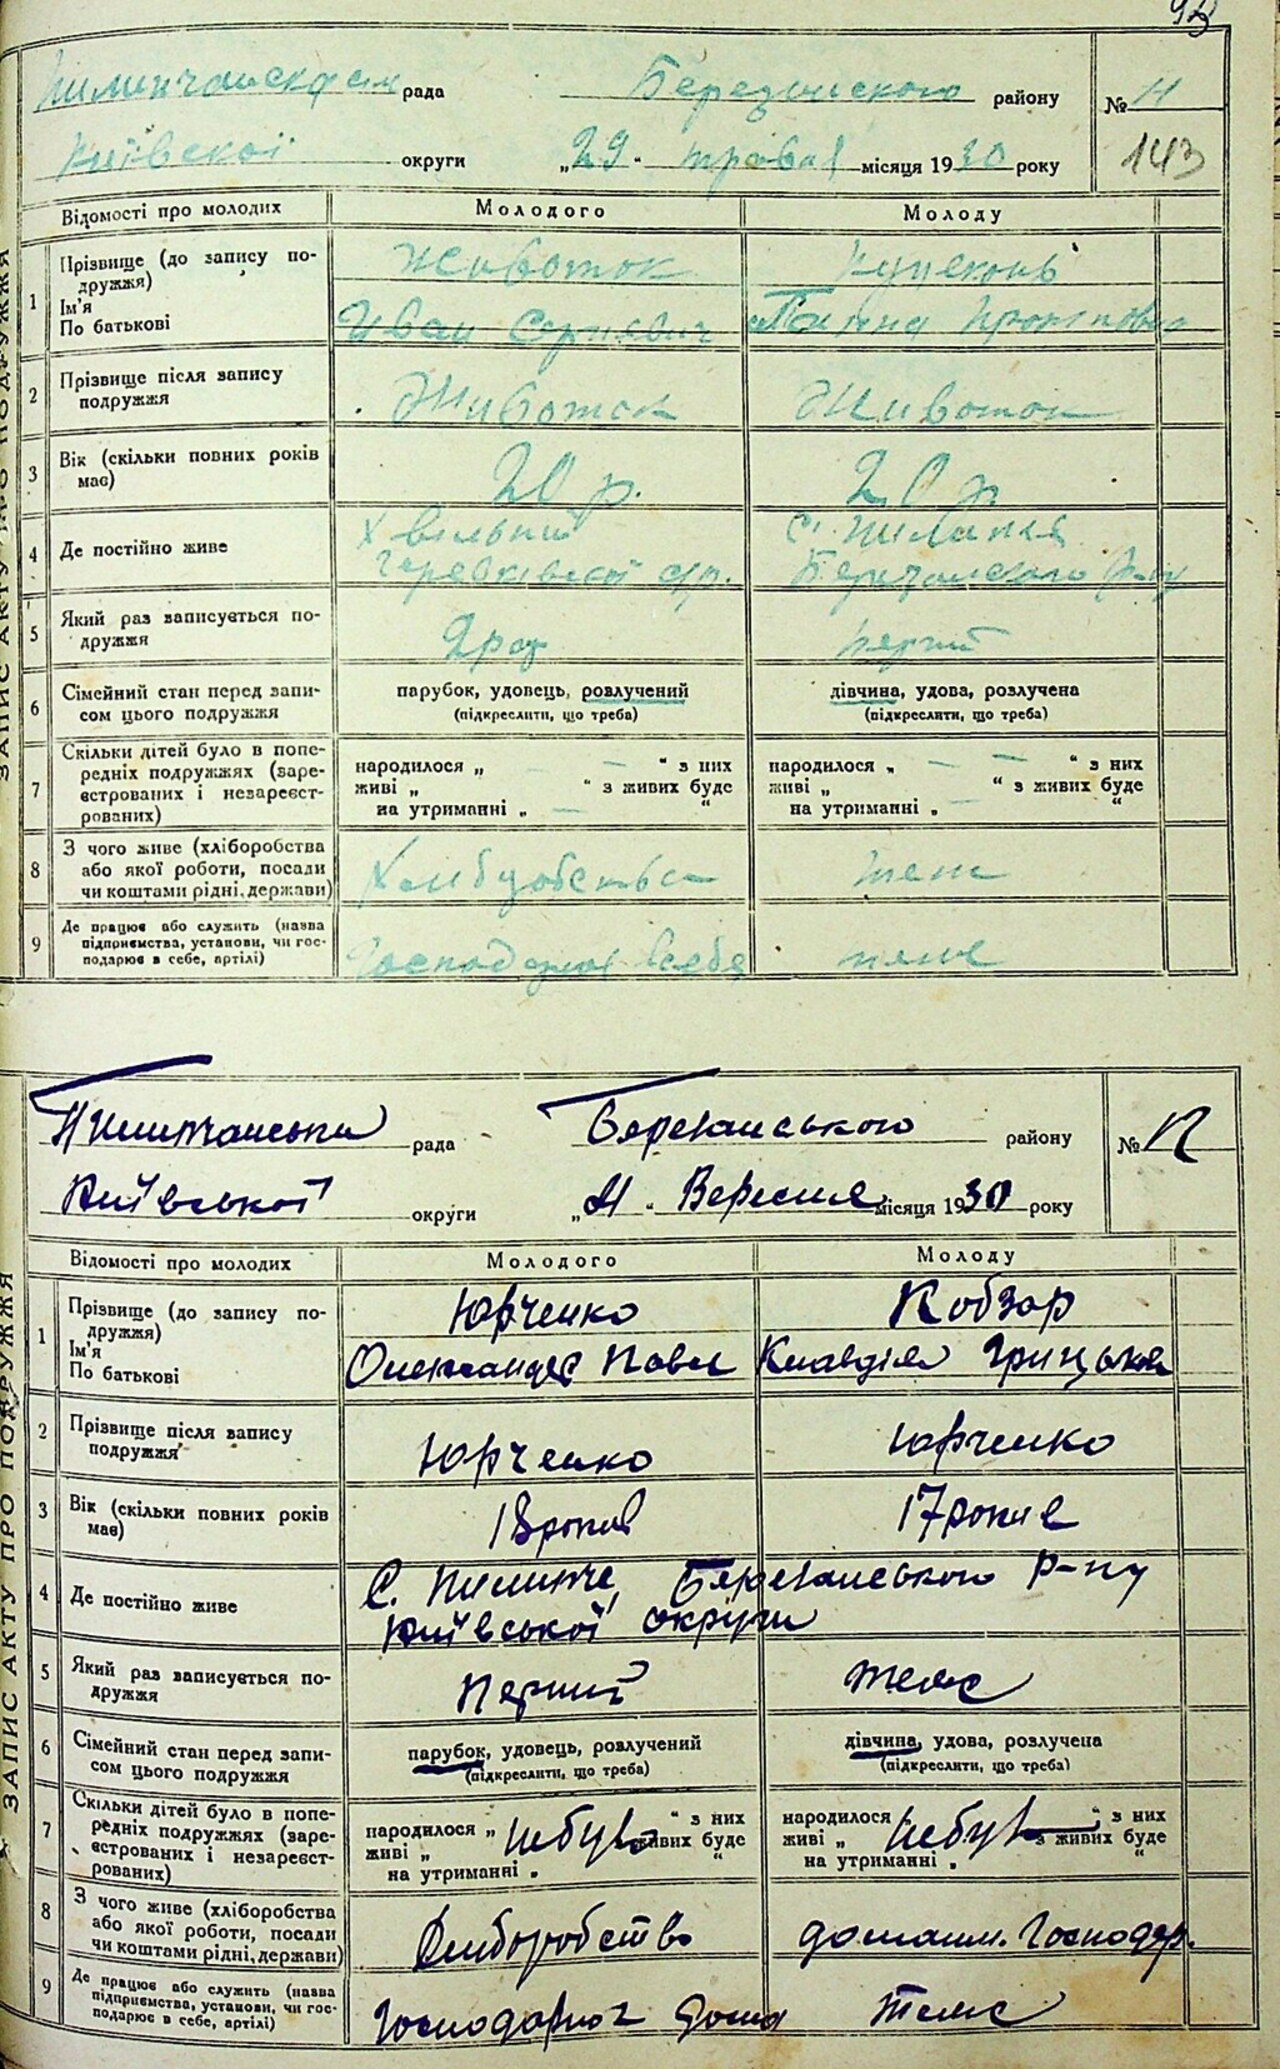 93
рада Березанского району № 11
Київскої округи „29“ травня місяця 1930 року 143
Відомості про молодих Молодого Молоду
ЗАПИС АКТУ ПРО ПОДРУЖЖЯ
1 Прізвище (до запису подружжя) Животок
Ім'я
По батькові Иван Сергиевич Ганна
2 Прізвище після запису
подружжя Животок Животок
3 Вік (скільки повних років
має) 20 р. 20 р
4 Де постійно живе Х Вільний с.
Березанского р-ну
5 Який раз записується по-
дружжя 2 раз перший
6 Сімейний стан перед запи-
сом цього подружжя парубок, удовець, розлучений дівчина, удова, розлучена
(підкреслити, що треба) (підкреслити, що треба)
7 Скільки дітей було в попе-
редніх подружжях (заре-
єстрованих і незареєст-
рованих)
народилося „ — — “ з них народилося „ — — “ з них
живі „ “ з живих буде живі „ “ з живих буде
на утриманні „ — “ на утриманні „ — “
8 З чого живе (хліборобства
або якої роботи, посади
чи коштами рідні, держави) теж
9 Де працює або служить (назва
підприємства, установи, чи гос-
подарює в себе, артілі) Господарює в себе теж
рада Березанського району № 12
Київської округи „11“ Вересня місяця 1930 року
Відомості про молодих Молодого Молоду
ЗАПИС АКТУ ПРО ПОДРУЖЖЯ
1 Прізвище (до запису по-
дружжя) Юрченко Кобзар
Ім'я
По батькові Олександр Павл Клавдія Грицьков
2 Прізвище після запису
подружжя Юрченко Юрченко
3 Вік (скільки повних років
має) 18 років 17 років
4 Де постійно живе С. Пилипче, Березанського р-ну
Київської округи
5 Який раз записується по-
дружжя Перший теж
6 Сімейний стан перед запи-
сом цього подружжя парубок, удовець, розлучений дівчина, удова, розлучена
(підкреслити, що треба) (підкреслити, що треба)
7 Скільки дітей було в попе-
редніх подружжях (заре-
єстрованих і незареєст-
рованих)
народилося „ “ з них народилося „ “ з них
живі „ небуло з живих буде живі „ небуло з живих буде
на утриманні „ “ на утриманні „ “
8 З чого живе (хліборобства
або якої роботи, посади
чи коштами рідні, держави) Хліборобство домашн. Господар.
9 Де працює або служить (назва
підприємства, установи, чи гос-
подарює в себе, артілі) Господарює дома теж